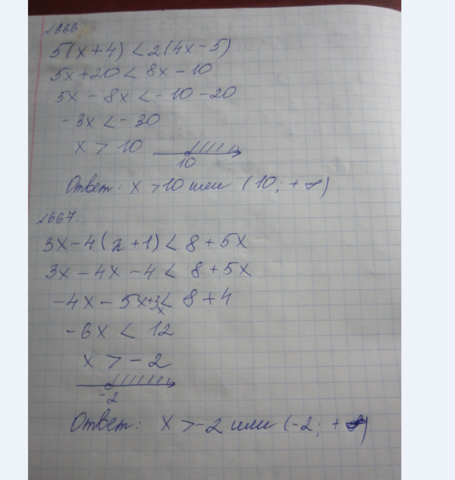 1666
5(x+4) < 2(4x-5)
5x+20 < 8x-10
5x-8x < -10-20
-3x < -30
x > 10
10
Ответ: x >10 или (10; +∞)
1667.
3x-4(x+1) < 8+5x
3x-4x-4 < 8+5x
-4x-5x+3x < 8+4
-6x < 12
x > -2
-2
Ответ: x >-2 или (-2; +∞)